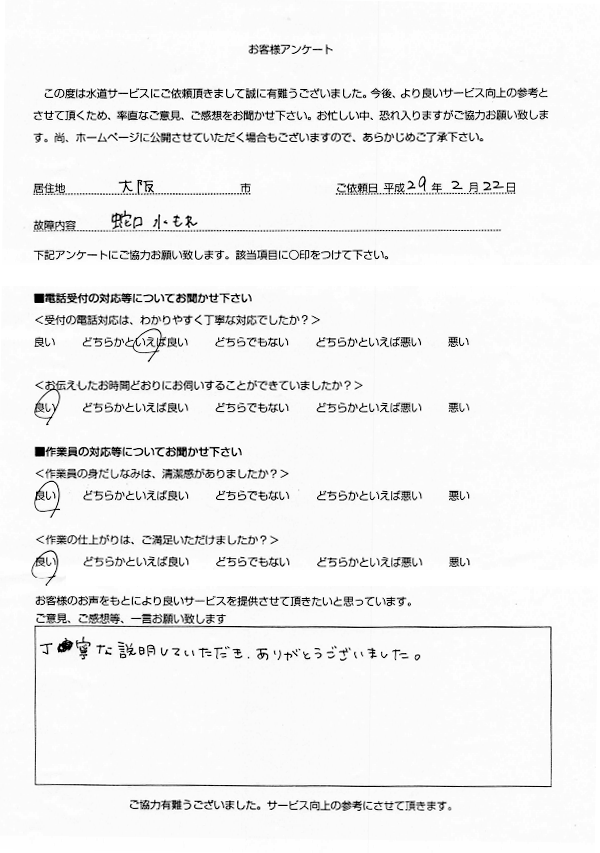 お客様アンケート
この度は水道サービスにご依頼頂きまして誠に有難うございました。今後、より良いサービス向上の参考と
させて頂くため、率直なご意見、ご感想をお聞かせ下さい。お忙しい中、恐れ入りますがご協力お願い致しま
す。尚、ホームページに公開させていただく場合もございますので、あらかじめご了承下さい。
居住地 大阪 市 ご依頼日 平成29年 2月22日
故障内容 蛇口 水もれ
下記アンケートにご協力お願い致します。該当項目に〇印をつけて下さい。
■電話受付の対応等についてお聞かせ下さい
＜受付の電話対応は、わかりやすく丁寧な対応でしたか？＞
良い どちらかといえば良い どちらでもない どちらかといえば悪い 悪い
＜お伝えしたお時間どおりにお伺いすることができていましたか？＞
良い どちらかといえば良い どちらでもない どちらかといえば悪い 悪い
■作業員の対応等についてお聞かせ下さい
＜作業員の身だしなみは、清潔感がありましたか？＞
良い どちらかといえば良い どちらでもない どちらかといえば悪い 悪い
＜作業の仕上がりは、ご満足いただけましたか？＞
良い どちらかといえば良い どちらでもない どちらかといえば悪い 悪い
お客様のお声をもとにより良いサービスを提供させて頂きたいと思っています。
ご意見、ご感想等、一言お願い致します
丁寧な説明していただき、ありがとうございました。
ご協力有難うございました。サービス向上の参考にさせて頂きます。